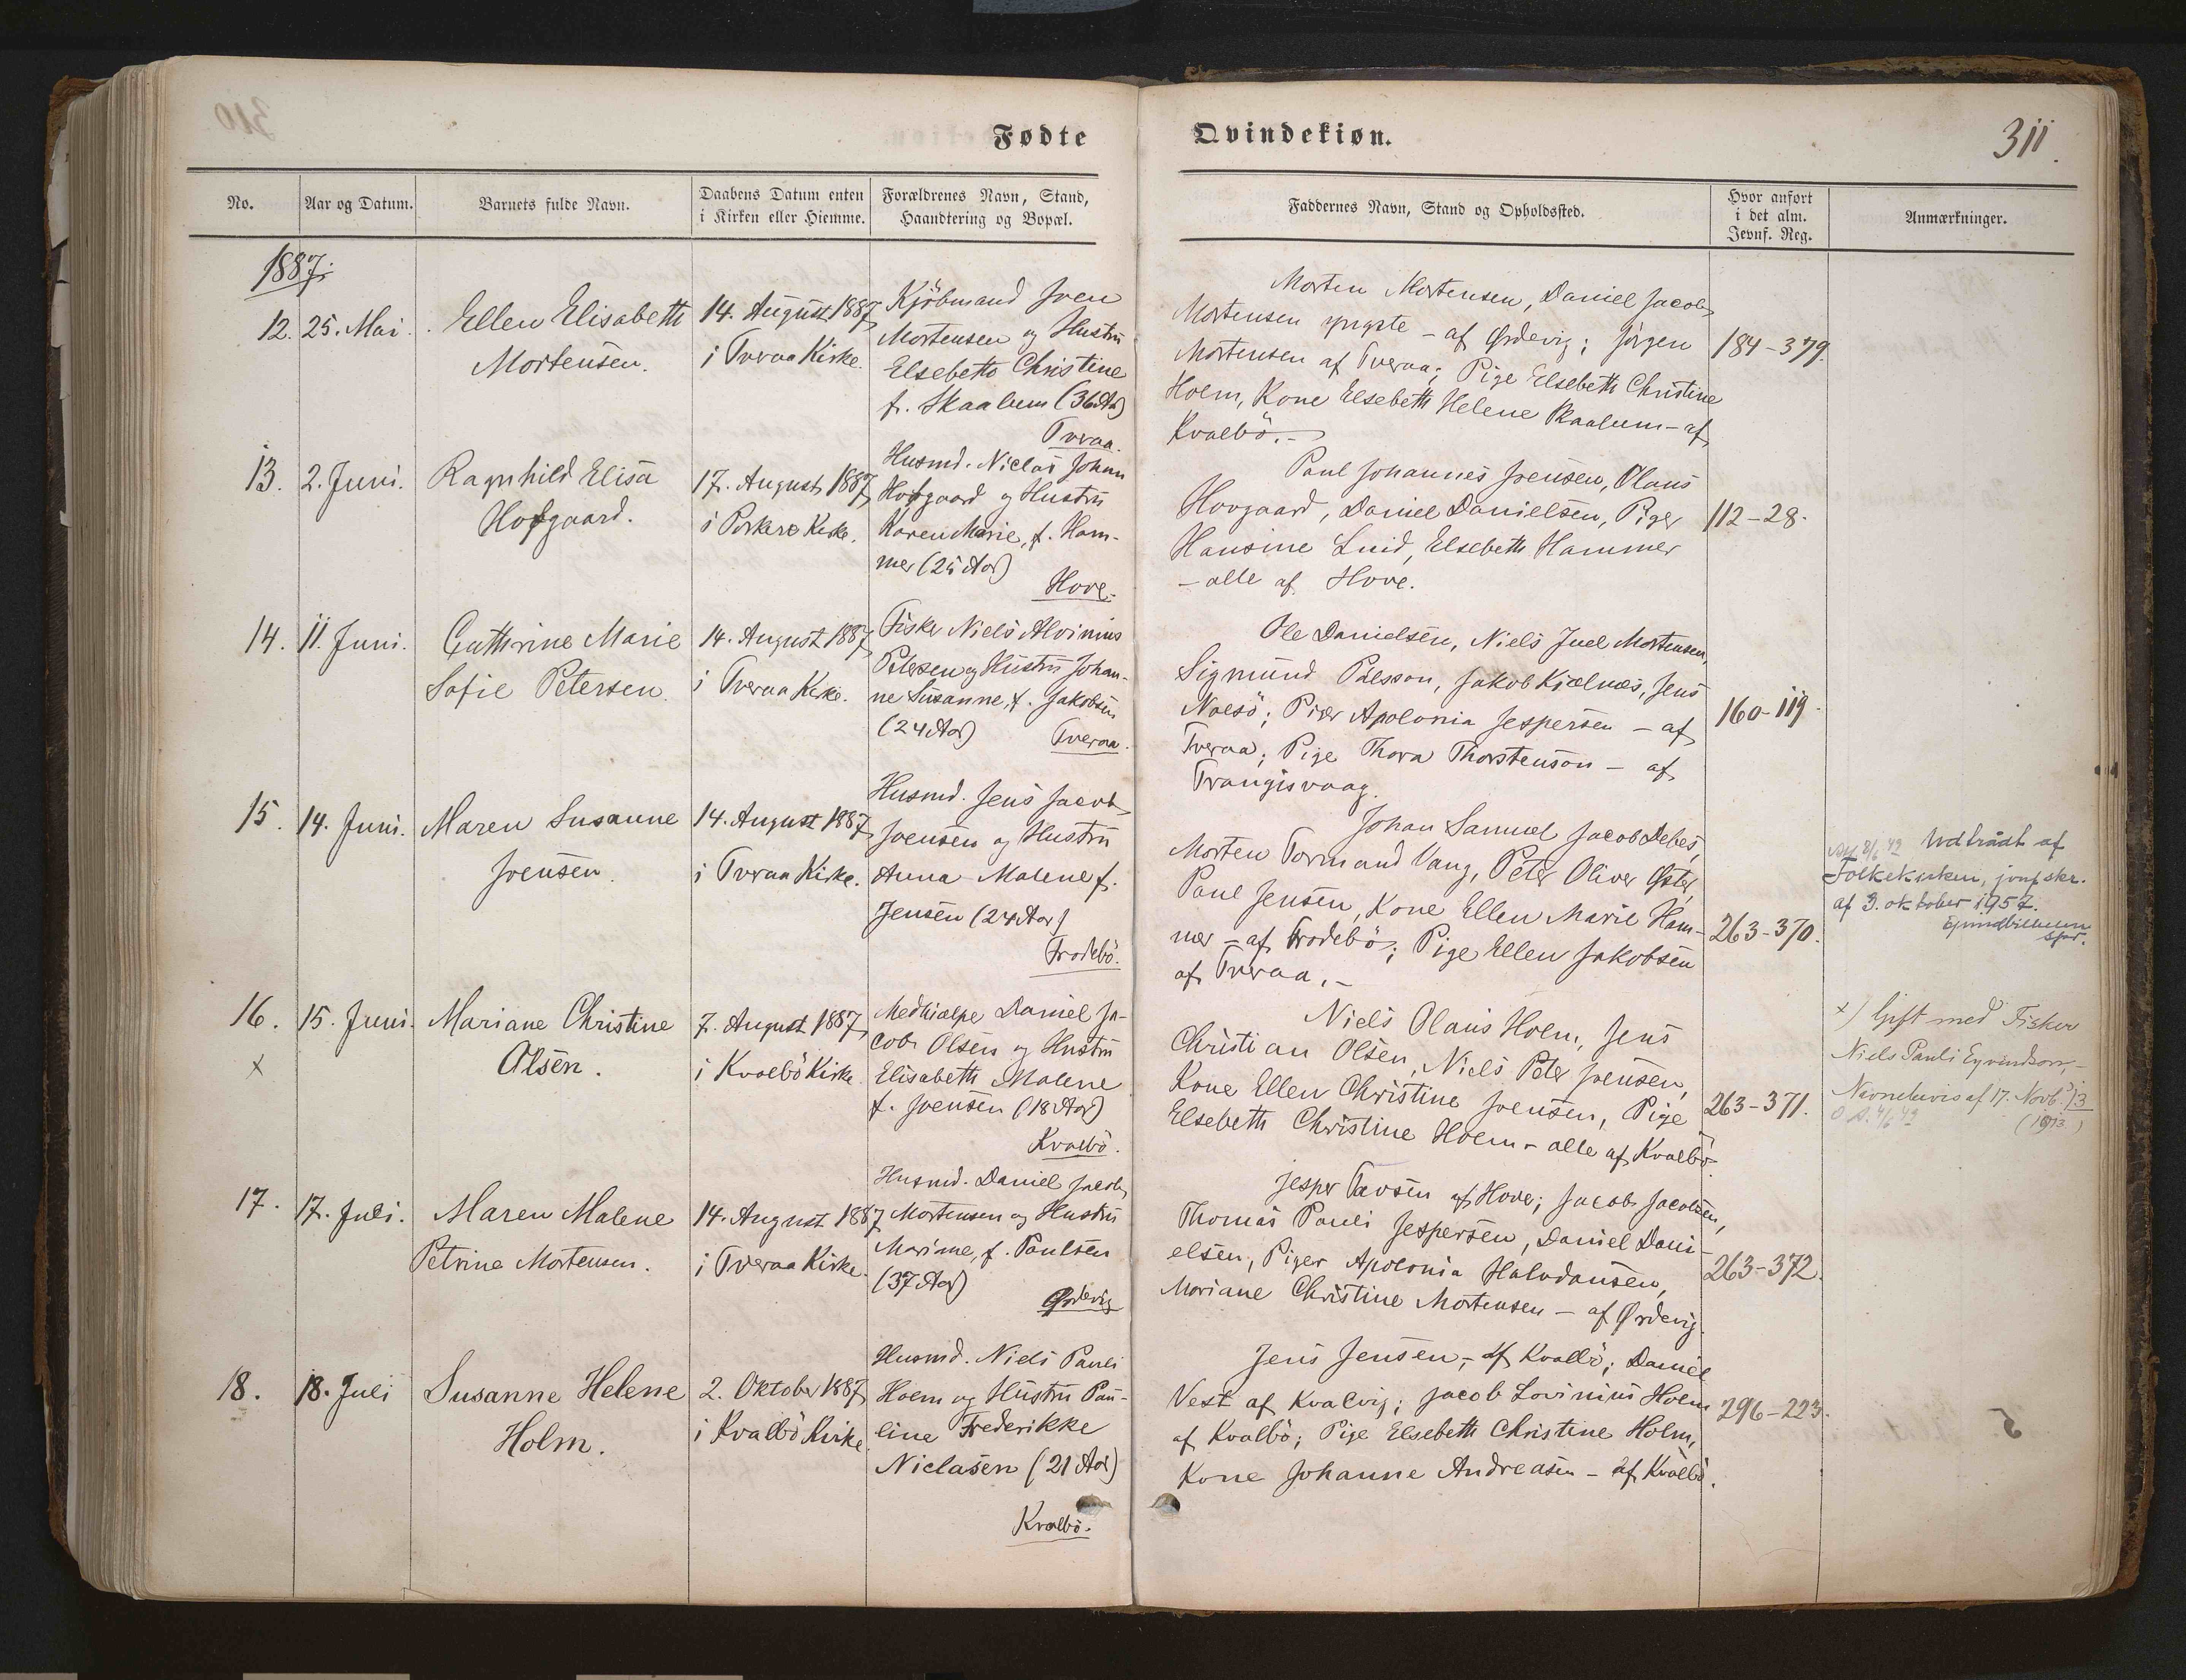 Fødte
Qvindekiøn.
311.
No.
Aar og Datum.
Barnets fulde Navn.
Daabens Datum enten
i Kirken eller Hiemme.
Forældrenes Navn, Stand,
Haandtering og Bopæl.
Faddernes Navn, Stand og Opholdssted.
Hvor anført
i det alm.
Jevnf. Reg.
Anmærkninger.
1887.
12.
25. Mai.
Ellen Elisabeth
Mortensen.
14. August 1887
i Tveraa Kirke.
Kjöbmand Joen
Mortensen og Hustru
Elsebeth Christine
f. Skaalum (36 Aar)
Tveraa.
Morten Mortensen, Daniel Jacob
Mortensen yngste - af Ørdevig; Jörgen
Mortensen af Tveraa; Pige Elsebeth Christine
Holm, Kone Elsebeth Helene Skaalum - af
Kvalbö. -
184-379.
13.
2. Juni.
Ragnhild Elisa
Hofgaard.
17. August 1887
i Porkere Kirke.
Husmd. Niclas Johan
Hofgaard og Hustru
Karen Marie, f. Ham-
mer (25 Aar)
Hove.
Poul Johannes Joensen, Olaus
Hovgaard, Daniel Danielsen, Piger
Hansine Luid, Elsebeth Hammer
- alle af Hove.
112-28.
14.
11. Juni.
Cathrine Marie
Sofie Petersen.
14. August 1887
i Tveraa Kirke.
Fisker Niels Alvinius
Petersen og Hustru Johan-
ne Susanne, f. Jakobsen
(24 Aar)
Tveraa.
Ole Danielsen, Niels Juel Mortensen,
Sigmund Pálsson, Jakob Kjælnæs, Jens
Nolsö; Piger Apolonia Jespersen - af
Tveraa; Pige Thora Thorstenson - af
Trangisvaag.
160-119.
15.
14. Juni.
Maren Susanne
Joensen.
14. August 1887
i Tveraa Kirke.
Husmd. Jens Jacob
Joensen og Hustru
Anna Malene f.
Jensen (24 Aar)
Frodebö.
Johan Samuel Jacob Debes,
Morten Tormand Vang, Peter Oliver Øster,
Paul Jensen, Kone Ellen Marie Ham-
mer - af Frodebö; Pige Ellen Jakobsen
af Tveraa. -
263-370.
Udtrådt af
Folkekirken, jvnf skr.
af 3. oktober 1957.
16.
x
15. Juni.
Mariane Christine
Olsen.
7. August 1887
i Kvalbö Kirke.
Medhiælper Daniel Ja-
cob Olsen og Hustru
Elisabeth Malene
f. Joensen (18 Aar)
Kvalbö.
Niels Olaus Holm, Jens
Christian Olsen, Niels Peter Joensen,
Kone Ellen Christine Joensen, Pige
Elsebeth Christine Holm - alle af Kvalbö.
263-371.
x) Gift med Fisker
Niels Pauli Eyvindson, -
Navnebevis af 17. Novb. 13
(1913)
17.
17. Juli.
Maren Malene
Petrine Mortensen.
14. August 1887
i Tveraa Kirke.
Husmd. Daniel Jacob
Mortensen og Hustru
Mariane, f. Poulsen
(37 Aar)
Ørdevig
Jesper Tavsen af Hove; Jacob Jacobsen,
Thomas Pauli Jespersen, Daniel Dani-
elsen, Piger Apolonia Halvdansen,
Mariane Christine Mortensen - af Ørdevig.
263-372.
18.
18. Juli
Susanne Helene
Holm.
2. Oktober 1887
i Kvalbö Kirke.
Husmd. Niels Pauli
Holm og Hustru Pau-
line Frederikke
Niclasen (21 Aar)
Kvalbö.
Jens Jensen, - af Kvalbö; Daniel
Vest af Kvalvig; Jacob Lovinius Holm
af Kvalbö; Pige Elsebeth Christine Holm,
Kone Johanne Andreasen - af Kvalbö.
296-223.